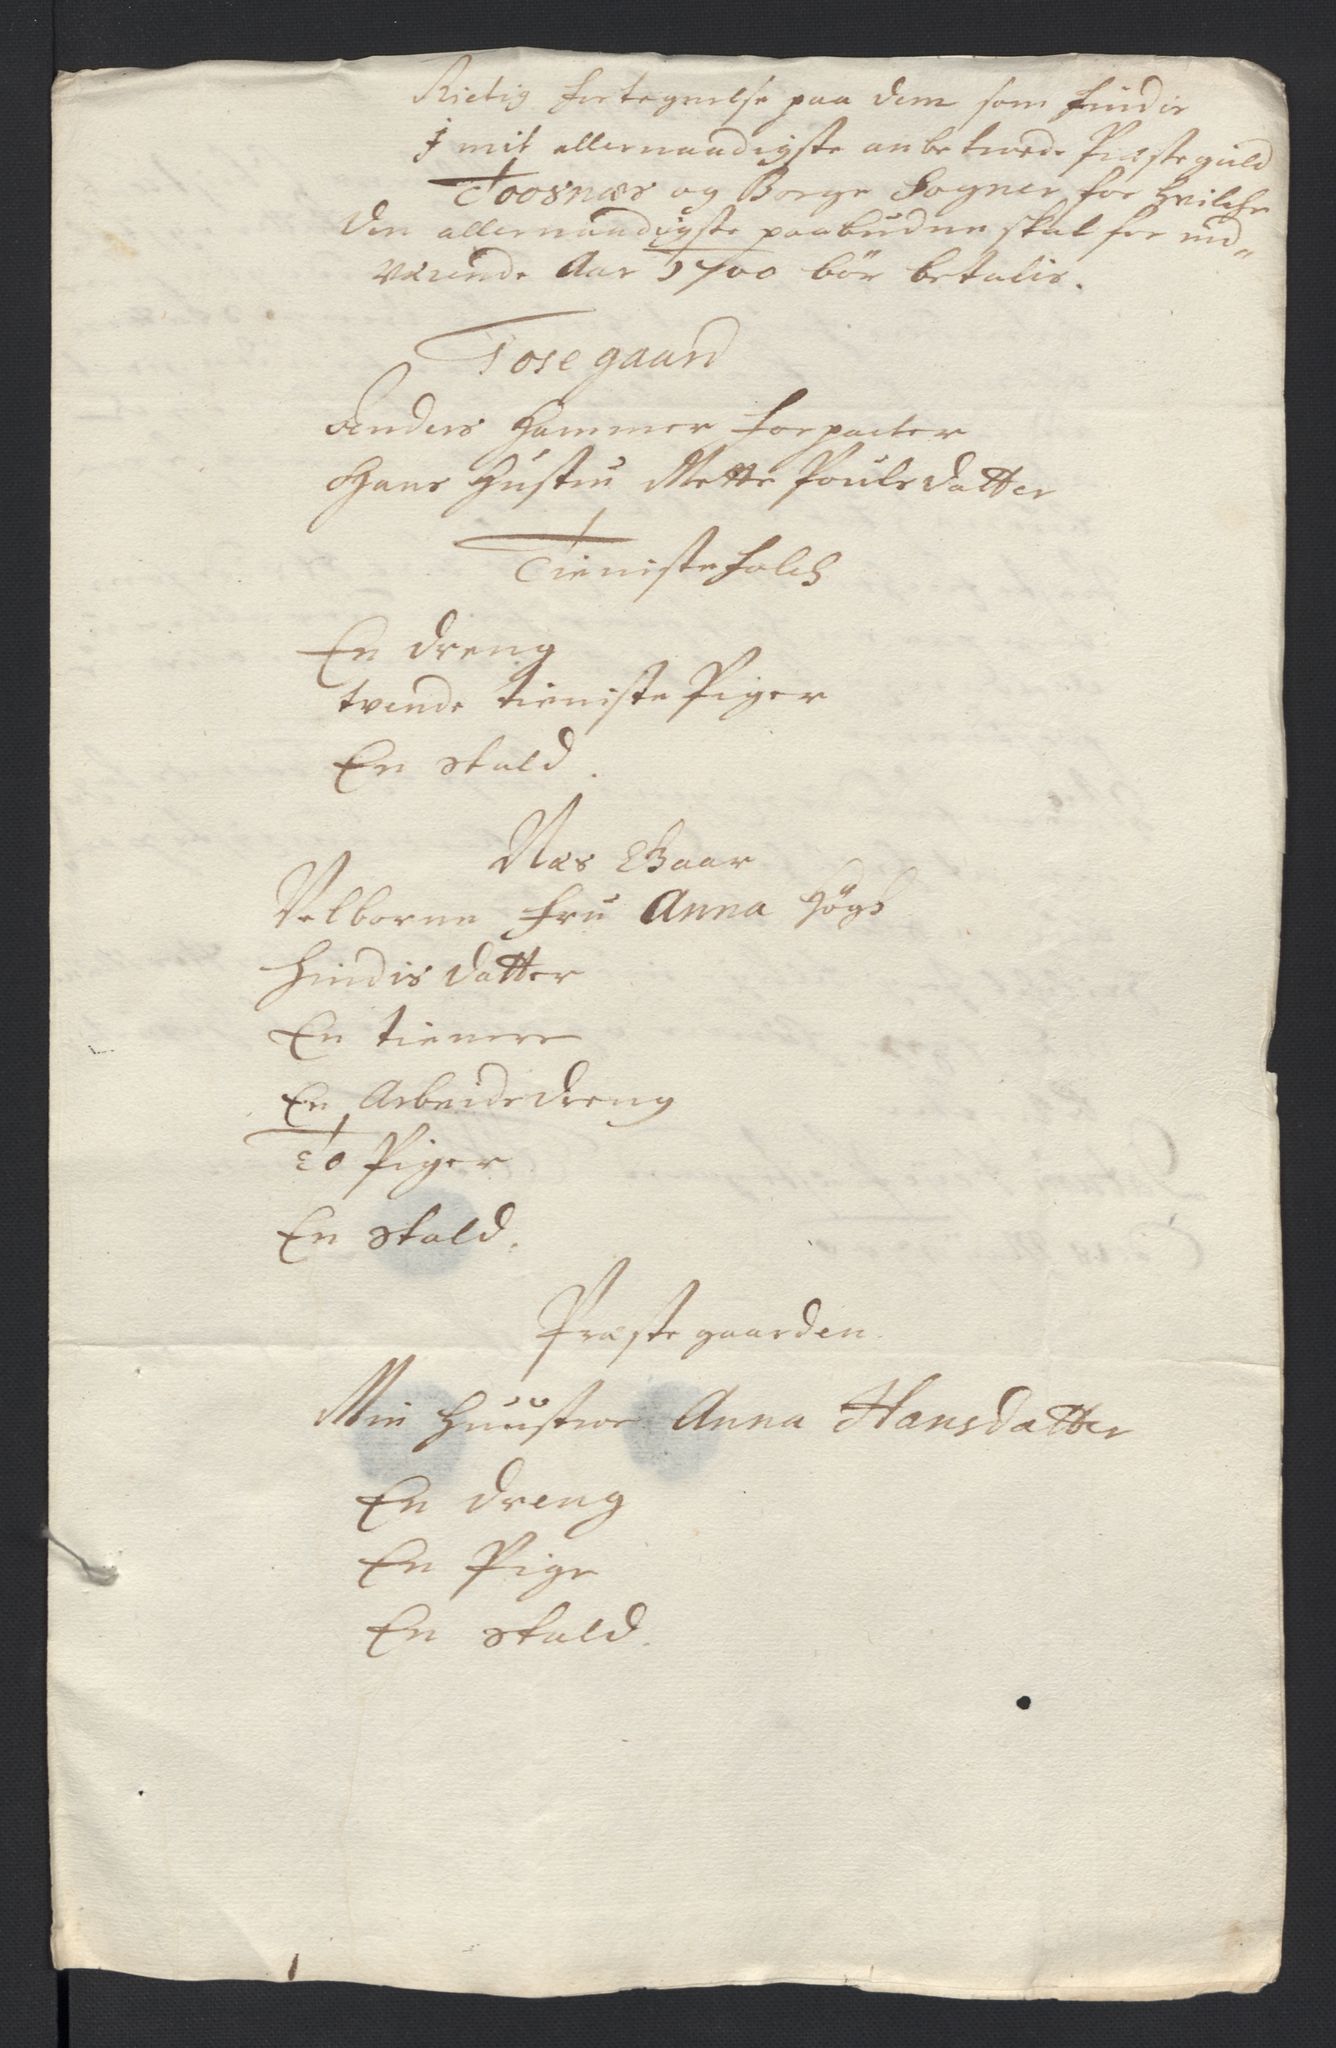 Rictig fortegnelse paa dem som findis
I mit allernaadigste anbetroede Præstegield
Toosnæs og Borge Sogner for hvilche
den allernaadigste paabudne skat for nid=
værende Aar 1700 bör betalis.
Tose gaard
Anders Hammer forpacter
Hans Hustru Mette Poulsdatter
Tienistefolch
En dreng
tvende tieniste Piger
En stald.
Næs Gaar
Velborne fru Anna Högh
Hindis datter
En tienere
En Arbeidsdreng
To Piger
En stald.
Præste gaarden.
Min Huustroe Anna Hansdatter
En dreng
En Pige
En stald.